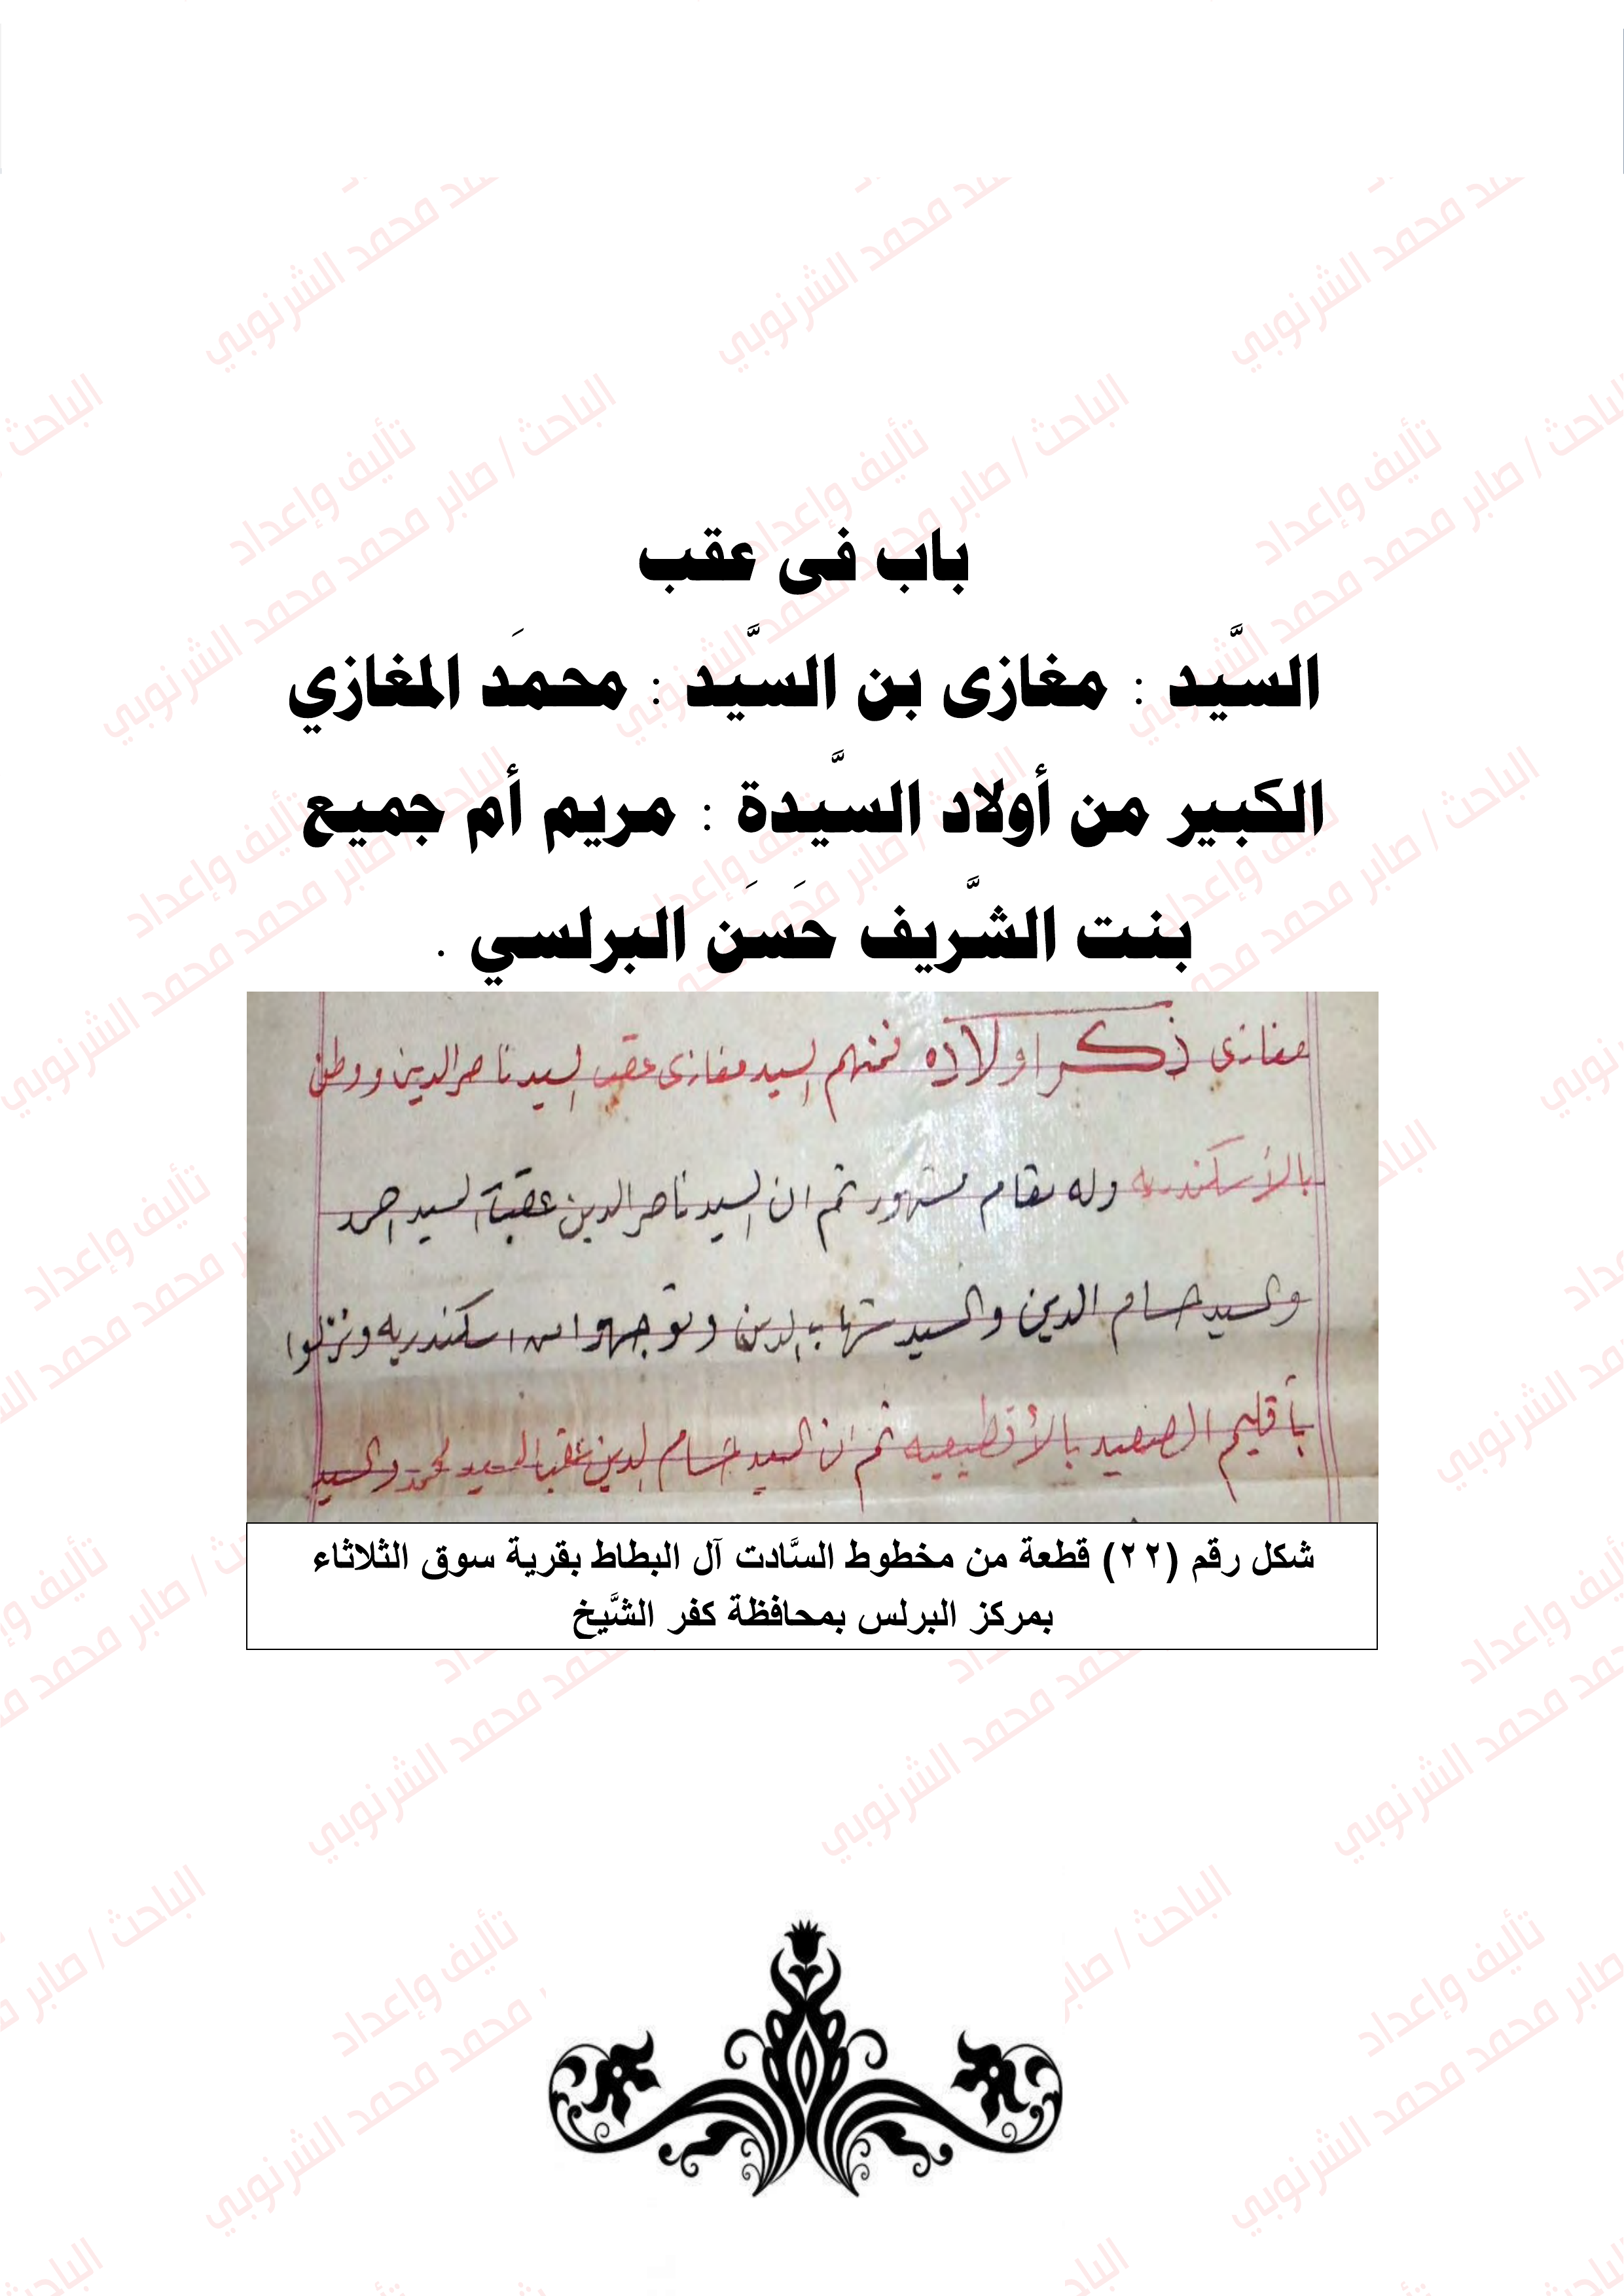 باب فى عقب
السَّيد : مغازى بن السَّيد : محمَد المغازي
الكبير من أولاد السَّيدة : مريم أم جميع
بنت الشَّريف حَسَن البرلسي .
مغازى ذكر اولاده فمنهم السيد مغازى عقب السيد ناصر الدين ووطن
بالأسكندريه وله مقام مشهور ثم ان السيد ناصر الدين عقب السيد احمد
والسيد حسام الدين والسيد شهاب الدين وتوجهوا من اسكندريه ونزلوا
بأقليم الصعيد ثم ان السيد حسام الدين عقب السيد محمد والسيد
شكل رقم (٢٢) قطعة من مخطوط السَّادت آل البطاط بقرية سوق الثلاثاء
بمركز البرلس بمحافظة كفر الشَّيخ
تأليف وإعداد
الباحث / صابر محمد محمد الشرنوبي